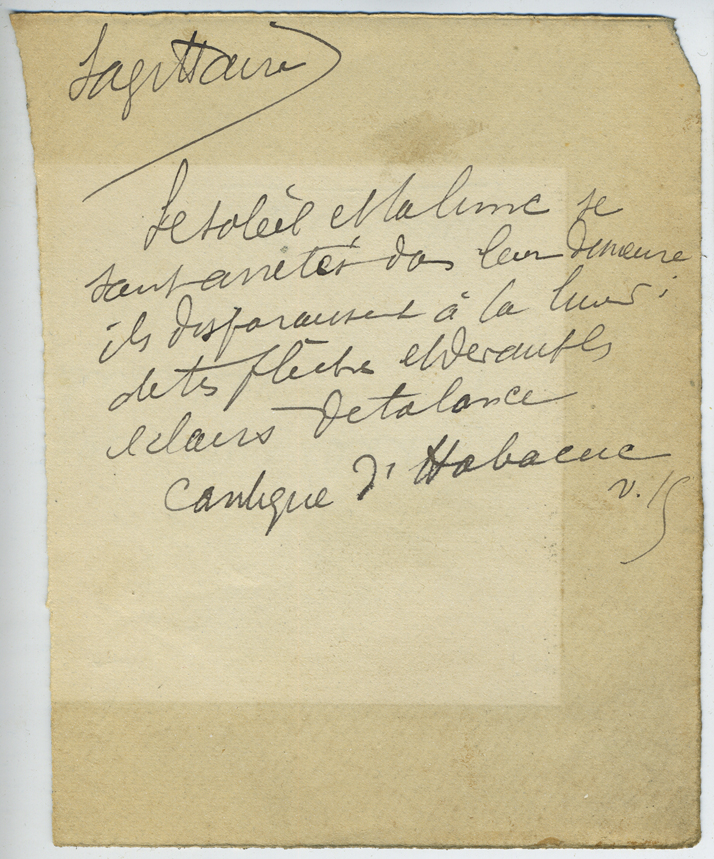 Sagittaire
Le soleil et la lune se
sont arrêtés dans leur demeure
ils disparaissent à la lueur
de tes flèches et devant les
éclairs de ta lance
Cantique d'Habacuc
v. 15